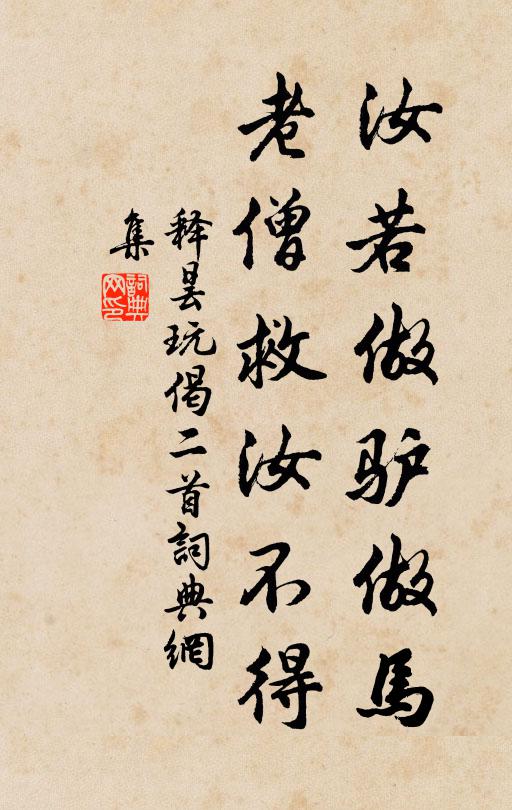 汝若做驴做馬
老僧救汝不得
释昙玩偈二首詞典網
集
詞典
网印